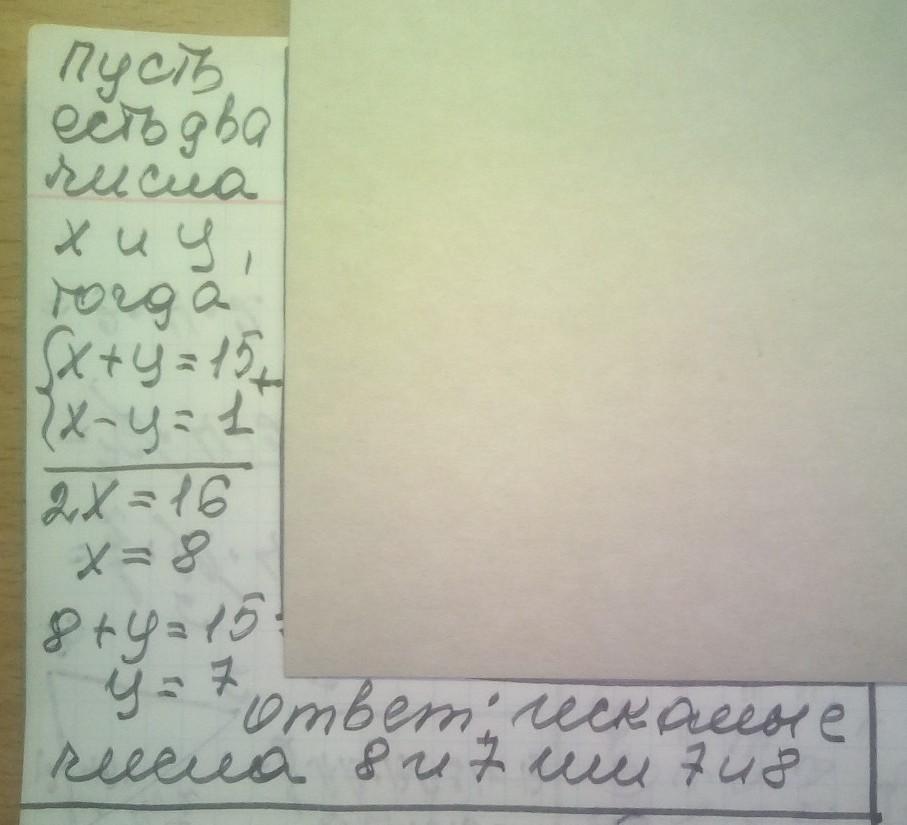 Пусть
есть два
числа
x и y,
тогда
{x+y=15
{x-y=1 +
2x=16
x=8
8+y=15
y=7
Ответ: искомые
числа 8 и 7 или 7 и 8